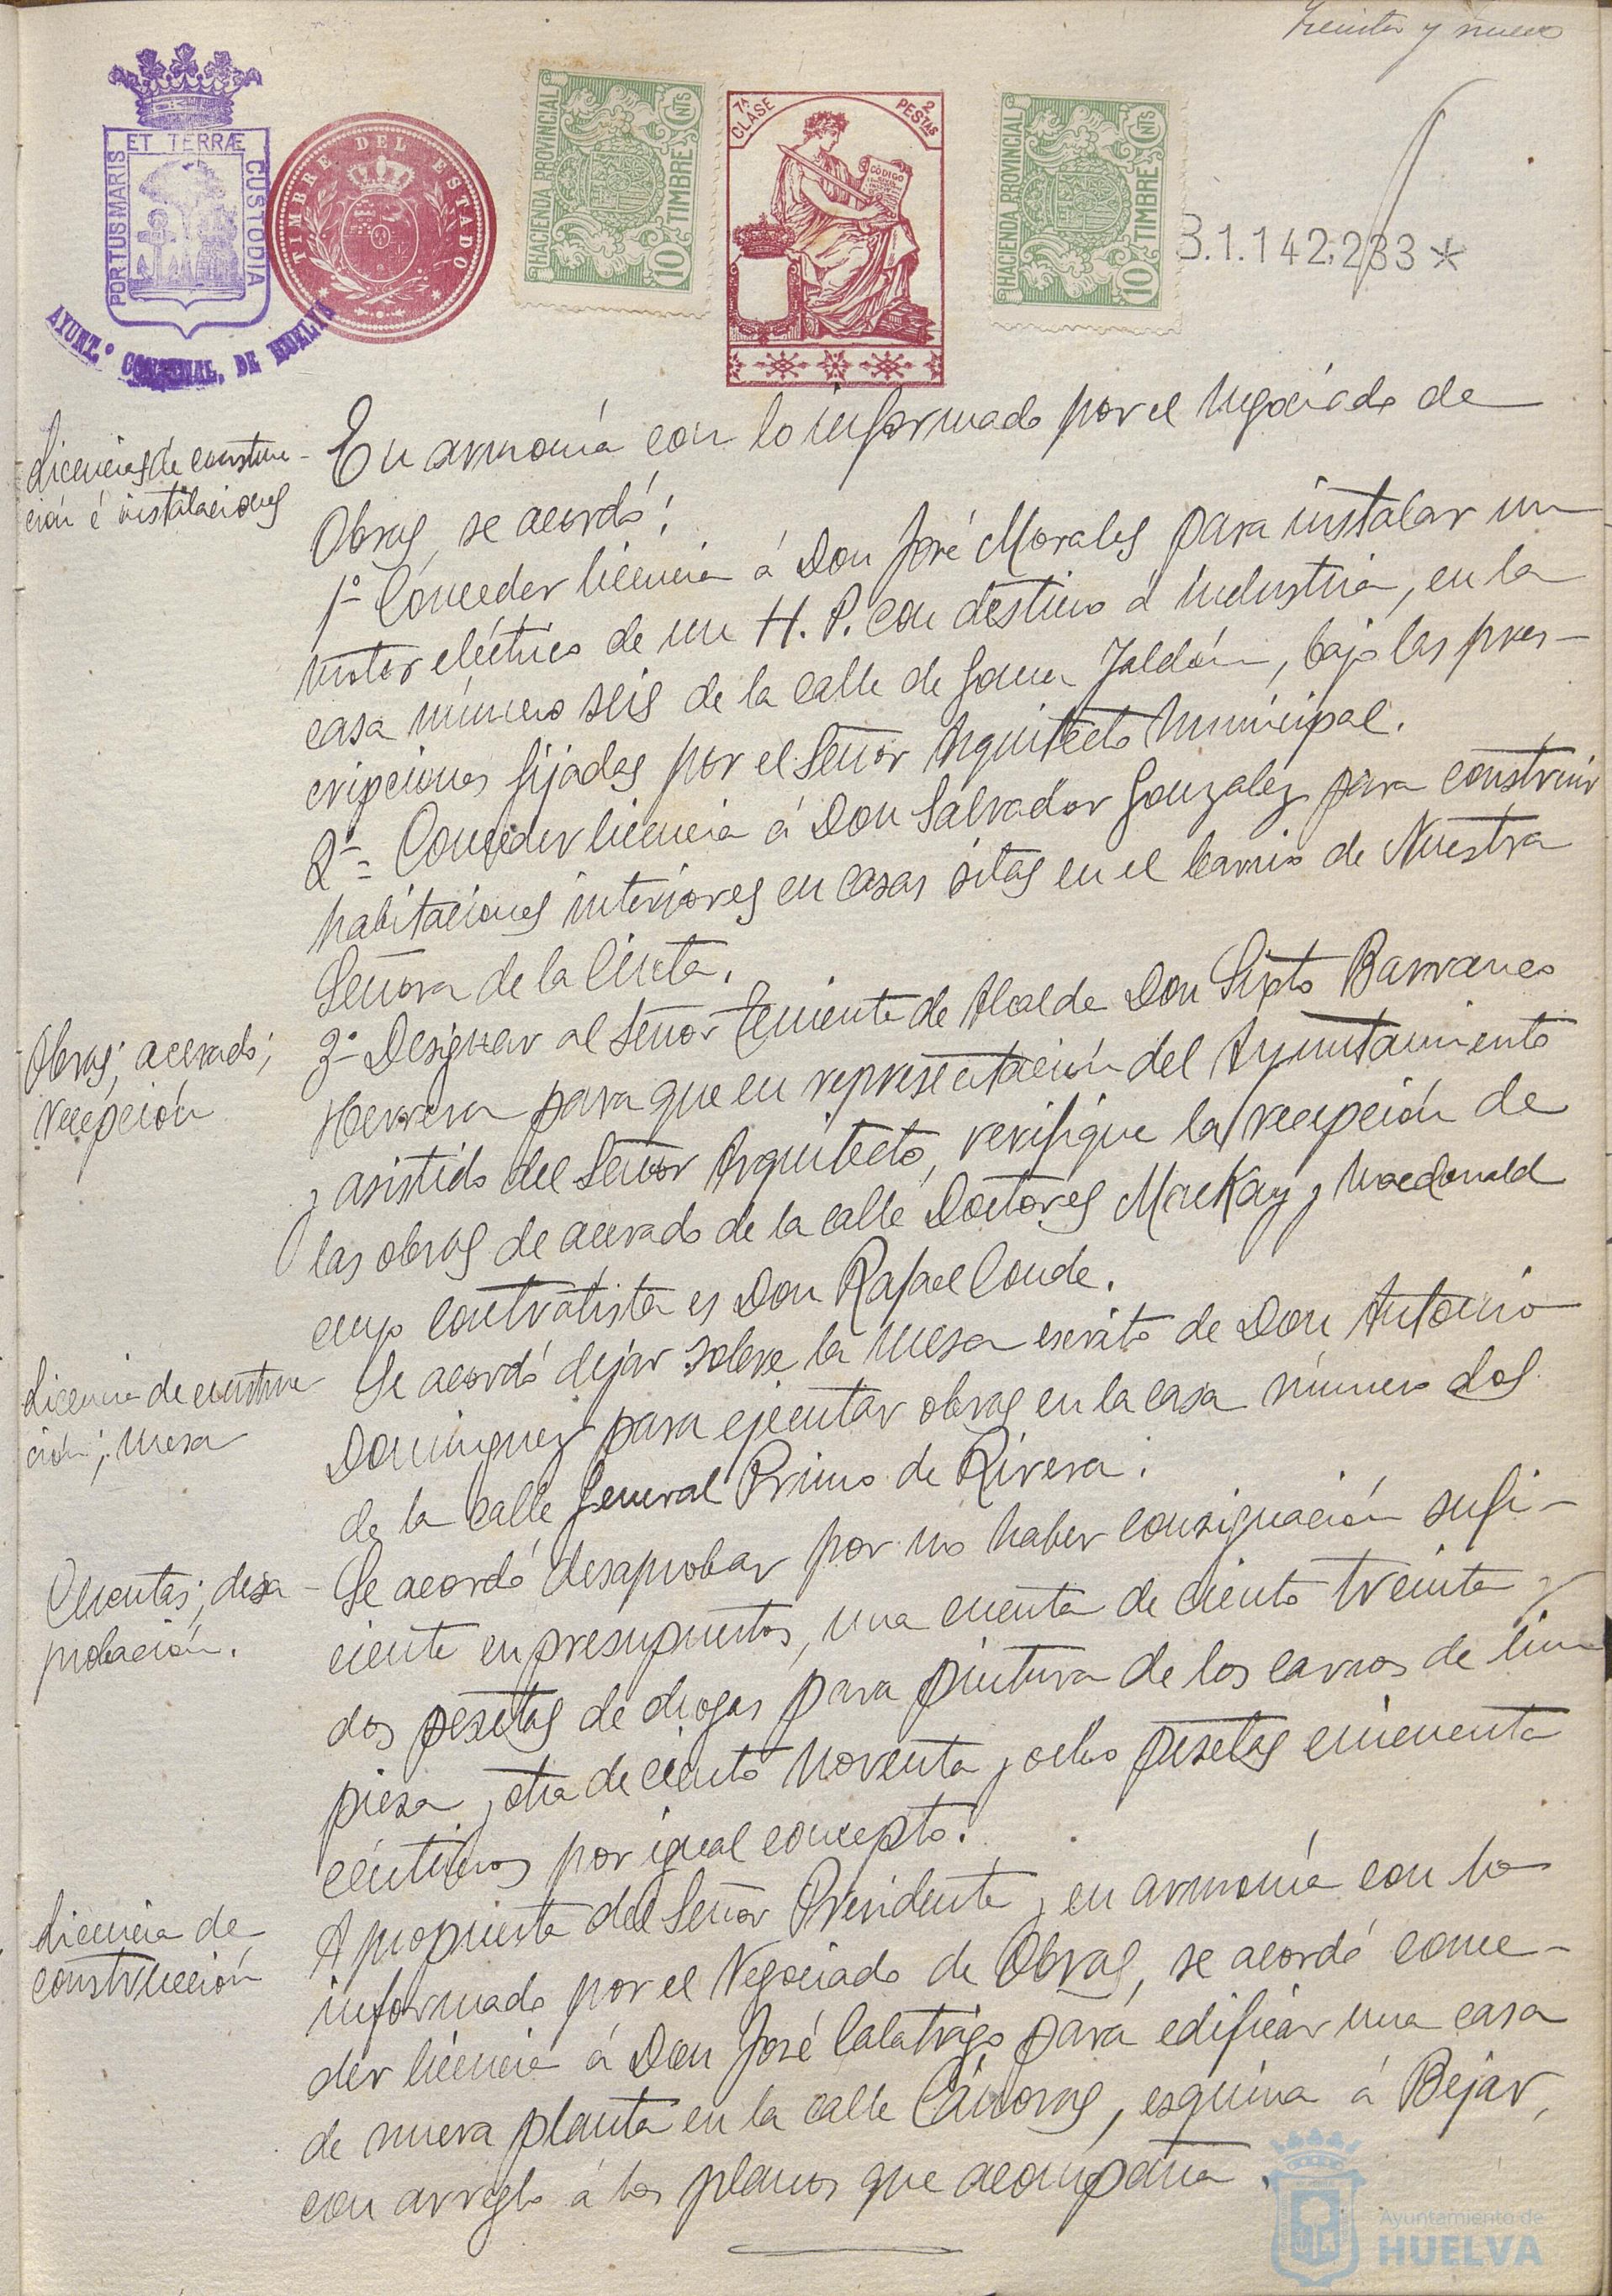 Treinta y nueve
PORTUS MARIS
ET TERRÆ
CUSTODIA
AYUNT.º CONSTNAL. DE HUELVA
TIMBRE DEL ESTADO
HACIENDA PROVINCIAL
10 CNTS TIMBRE
7ª CLASE
2 PESTAS
CÓDIGO
HACIENDA PROVINCIAL
10 CNTS TIMBRE
B.1.142.233*
Licencias de construc-
ción é instalaciones
En armonía con lo informado por el Negociado de
Obras, se acordó:
1º Conceder licencia á Don José Morales para instalar un
motor eléctrico de un H. P. con destino á industria, en la
casa número seis de la calle de Jaldón, bajo las pres-
cripciones fijadas por el Señor Arquitecto Municipal.
2º = Conceder licencia á Don Salvador Gonzalez para construir
habitaciones interiores en casas sitas en el barrio de Nuestra
Señora de la Cinta.
Obras; acerado;
recepción
3º Designar al Señor Teniente de Alcalde Don Sixto Barranco
Herrera para que en representación del Ayuntamiento
y asistido del Señor Arquitecto, verifique la recepción de
las obras de acerado de la calle Doctores MacKay y Macdonald
cuyo contratista es Don Rafael Conde.
Licencia de construc
ción; mesa
Se acordó dejar sobre la mesa escrito de Don Antonio
Dominguez para ejecutar obras en la casa número dos
de la calle General Primo de Rivera.
Cuentas; desa-
probación.
Se acordó desaprobar por no haber consignación sufi-
ciente en presupuestos, una cuenta de ciento treinta y
dos pesetas de drogas para pintura de los carros de lim
pieza y otra de ciento noventa y ocho pesetas cincuenta
céntimos por igual concepto.
Licencia de
construcción
A propuesta del Señor Presidente y en armonía con lo
informado por el Negociado de Obras, se acordó conce-
der licencia á Don José Calatrigo para edificar una casa
de nueva planta en la calle Cánovas, esquina á Bejar,
con arreglo á los planos que acompaña.
Ayuntamiento de
HUELVA